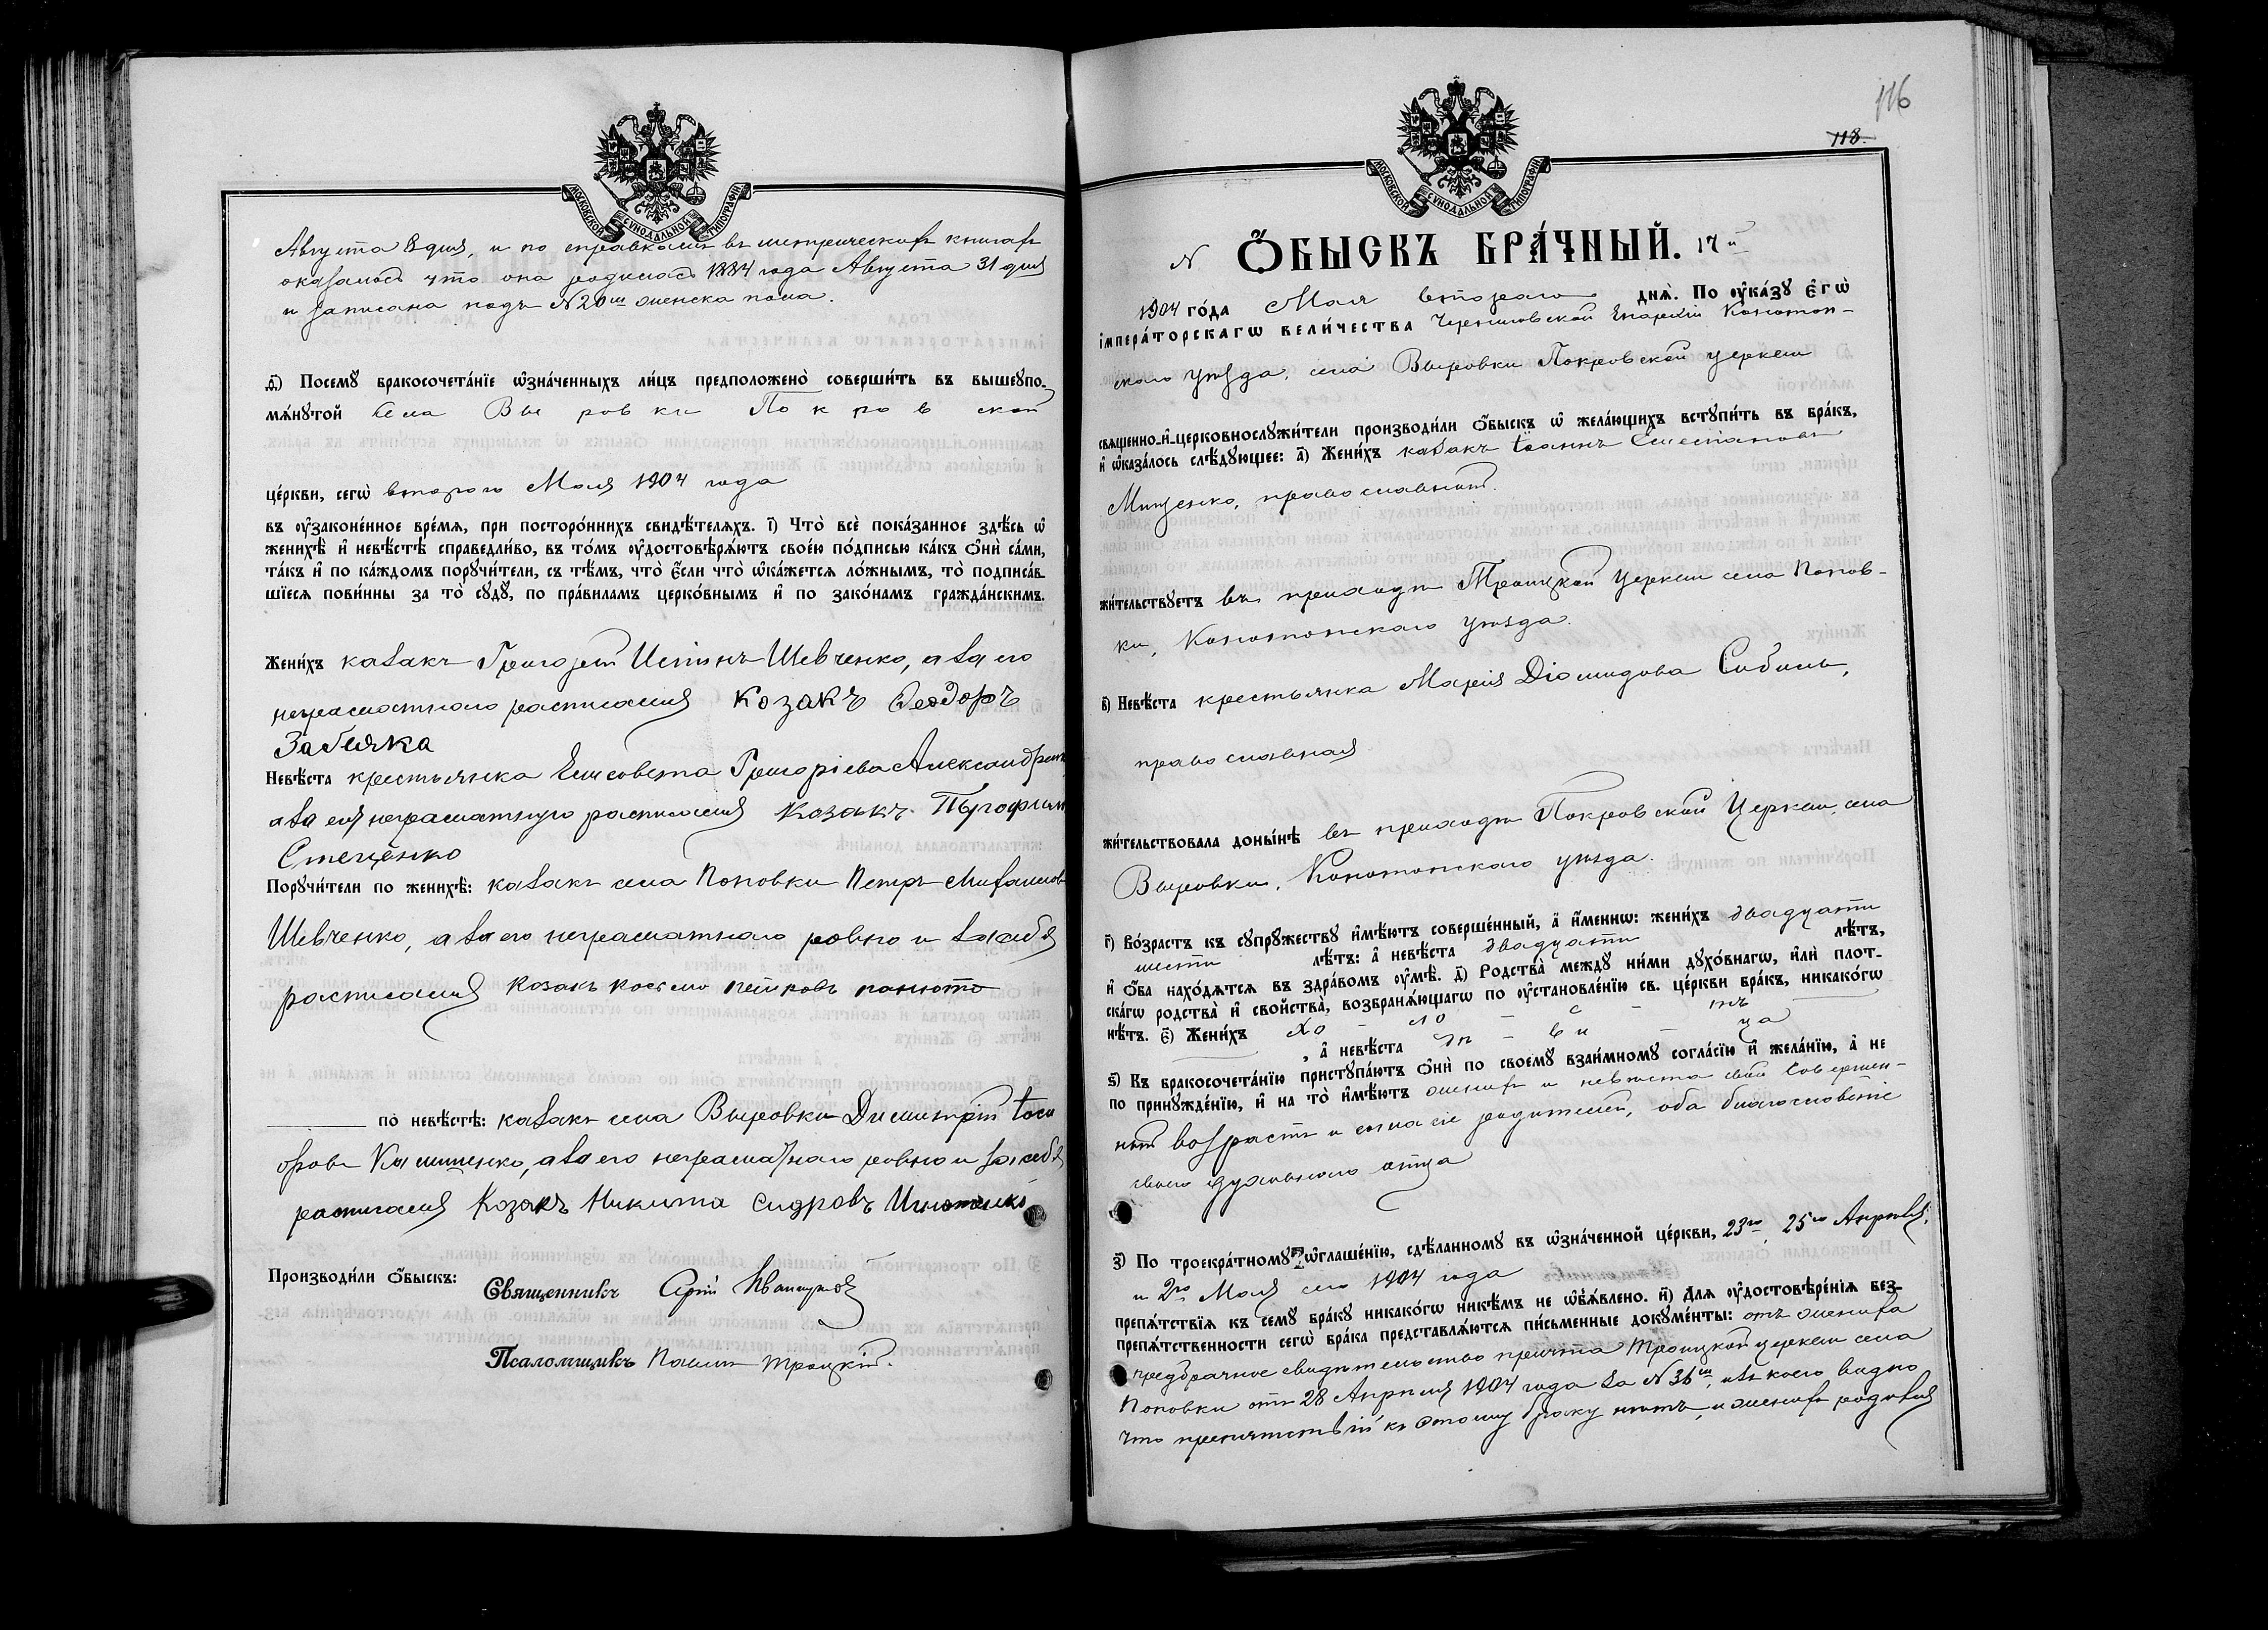 МОСКОВСКОЙ СѴНОДАЛЬНОЙ ТИПОГРАФІИ
Августа 8 дня, и по справкамъ въ метрическихъ книгахъ
оказалось что она родилась 1884 года Августа 31 дня
и записана подъ №20ш женска пола.
д҃і) Посемꙋ бракосочета́нїе ѡ҆зна́ченныхъ ли́цъ предположено̀ соверши́ть въ вышеꙋпо-
мѧ́нꙋтой села Выровки Покровской
це́ркви, сегѡ̀ второго Мая 1904 года
въ ᲂу҆законе́нное вре́мѧ, при посторо́ннихъ свидѣ́телѧхъ. і҃) Что̀ всѐ пока́занное здѣ́сь ѡ҆
женихѣ̀ и҆ невѣ́стѣ справедли́во, въ то́мъ ᲂу҆достовѣрѧ́ютъ свое́ю по́дписью ка́къ ѻ҆нѝ са́ми,
та́къ и҆ по ка́ждомъ порꙋчи́тели, съ тѣ́мъ, что̀ є҆́сли что̀ ѡ҆ка́жетсѧ ло́жнымъ, то̀ подписа́в-
шїесѧ пови́нны за то̀ сꙋдꙋ̀, по пра́виламъ церко́внымъ и҆ по зако́намъ гражда́нскимъ.
Жени́хъ казакъ Григорій Шевченко, а за его
неграмотнаго росписался Козакъ Ѳеодоръ
Забияка
Невѣ́ста крестьянка Елисовета Григоріева Александр
а за ея неграмотную росписался Козакъ
Стеценко
Порꙋчи́тели по женихѣ̀: казакъ села Поповки Петръ Михаиловъ
Шевченко, а за его неграмотнаго ровно и за себя
росписался Козакъ Косьма Петровъ
по невѣ́стѣ: казакъ села Выровки Димитрій
а за его неграмотнаго ровно и за себя
росписался Козакъ Никита Сидровъ
Производи́ли ѻ҆́быскъ: Священникъ
Псаломщикъ Павелъ Троицкій.
116
118.
МОСКОВСКОЙ СѴНОДАЛЬНОЙ ТИПОГРАФІИ
N Ѻ҆́БЫСКЪ БРА́ЧНЫЙ. 17й
1904 го́да Мая второго днѧ̀. По ᲂу҆ка́зꙋ є҆гѡ̀
і҆мпера́торскагѡ вели́чества Черниговской Епархіи Конотоп-
скаго уѣзда, села Выровки Покровской церкви
свѧще́нно-и҆-церковнослꙋжи́тели производи́ли ѻ҆́быскъ ѡ҆ жела́ющихъ встꙋпи́ть въ бра́къ,
и҆ ѡ҆каза́лось слѣ́дꙋющее: а҃) Жени́хъ казакъ Іоаннъ
Мищенко, православный.
жи́тельствꙋетъ въ приходѣ Троицкой церкви села Попов-
ки, Конотопскаго уѣзда.
в҃) Невѣ́ста крестьянка Марія Діомидова
православная
жи́тельствовала доны́нѣ въ приходѣ Покровской Церкви, села
Выровки, Конотопскаго уѣзда.
г҃) Во́зрастъ къ сꙋпрꙋ́жествꙋ и҆мѣ́ютъ соверше́нный, а҆ и҆́меннѡ: жени́хъ двадцати
шести лѣ́тъ: а҆ невѣ́ста двадцати лѣ́тъ,
и҆ ѻ҆́ба нахо́дѧтсѧ въ здра́вомъ ᲂу҆мѣ̀. д҃) Родства̀ междꙋ̀ ни́ми дꙋхо́внагѡ, и҆лѝ плот-
ска́гѡ родства̀ и҆ сво́йства, возбранѧ́ющагѡ по ᲂу҆становле́нїю св. це́ркви бра́къ, никако́гѡ
нѣ́тъ. є҃) Жени́хъ хо-ло-с-тъ
, а҆ невѣ́ста дѣ-ви-ца
ѕ҃) Къ бракосочета́нїю пристꙋпа́ютъ ѻ҆нѝ по своемꙋ̀ взаи́мномꙋ согла́сїю и҆ жела́нїю, а҆ не
по принꙋжде́нїю, и҆ на то̀ и҆мѣ́ютъ женихъ и невѣста свой совершен-
ный возрастъ и согласіе родителей, оба благословеніе
своего духовнаго отца
з҃) По троекра́тномꙋ ѡ҆глаше́нїю, сдѣ́ланномꙋ въ ѡ҆зна́ченной це́ркви, 23го, 25го Апрѣля,
и 2го Мая сего 1904 года
препѧ́тствїѧ къ семꙋ̀ бра́кꙋ никако́гѡ никѣ́мъ не ѡ҆б̾ѧ́влено. и҃) Длѧ ᲂу҆достовѣре́нїѧ без-
препѧ́тственности сегѡ̀ бра́ка представлѧ́ютсѧ пи́сьменные докꙋме́нты: отъ жениха
предбрачное свидѣтельство причта Троицкой церкви села
Поповки отъ 28 Апрѣля 1904 года за №36ш, изъ коего видно
что препятствій къ этому браку нѣтъ, и женихъ родился